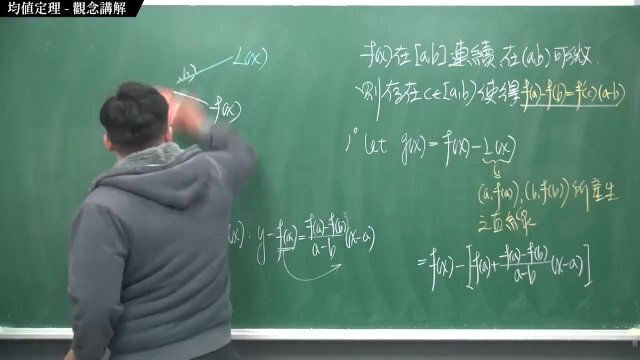 均值定理 - 觀念講解
L(x)
f(x)
f(x)在[a,b]連續 在(a,b)可微
則存在c∈(a,b)使得 f(a)-f(b)=f'(c)(a-b)
1° let g(x) = f(x) - L(x)
(a, f(a)), (b, f(b)) 所產生
之直線
y - f(a) = \frac{f(a)-f(b)}{a-b}(x-a)
= f(x) - [f(a) + \frac{f(a)-f(b)}{a-b}(x-a)]